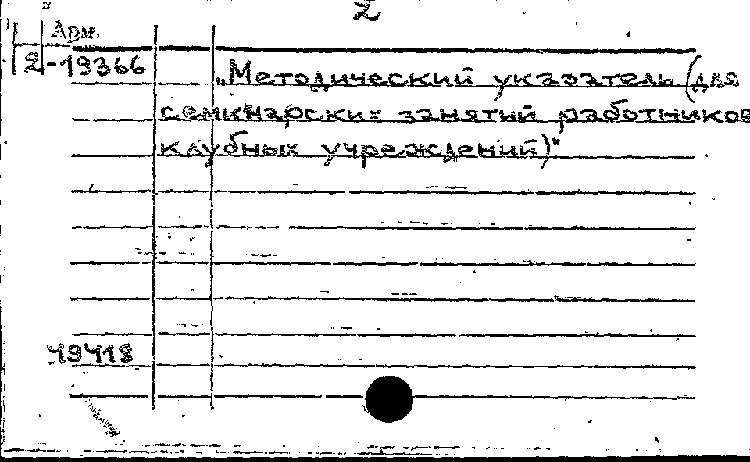 2
Арм.
2-19366
„Методический указатель (для
семинарских занятий работников
клубных учреждений)"
49418